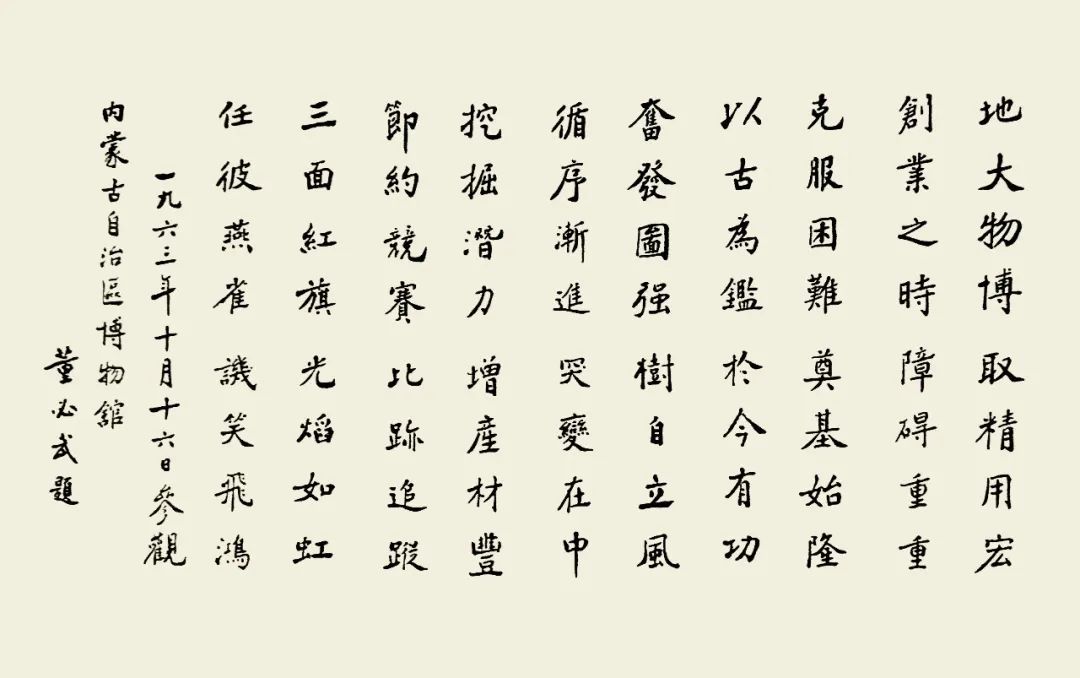 地大物博取精用宏
創業之時障碍重重
克服困難奠基始隆
以古為鑑於今有功
奮發圖强樹自立風
循序漸進突變在中
挖掘潛力增產材豐
節約競賽比跡追蹤
三面紅旗光焰如虹
任彼燕雀譏笑飛鴻
一九六三年十月十六日參觀
內蒙古自治區博物舘
董必武題